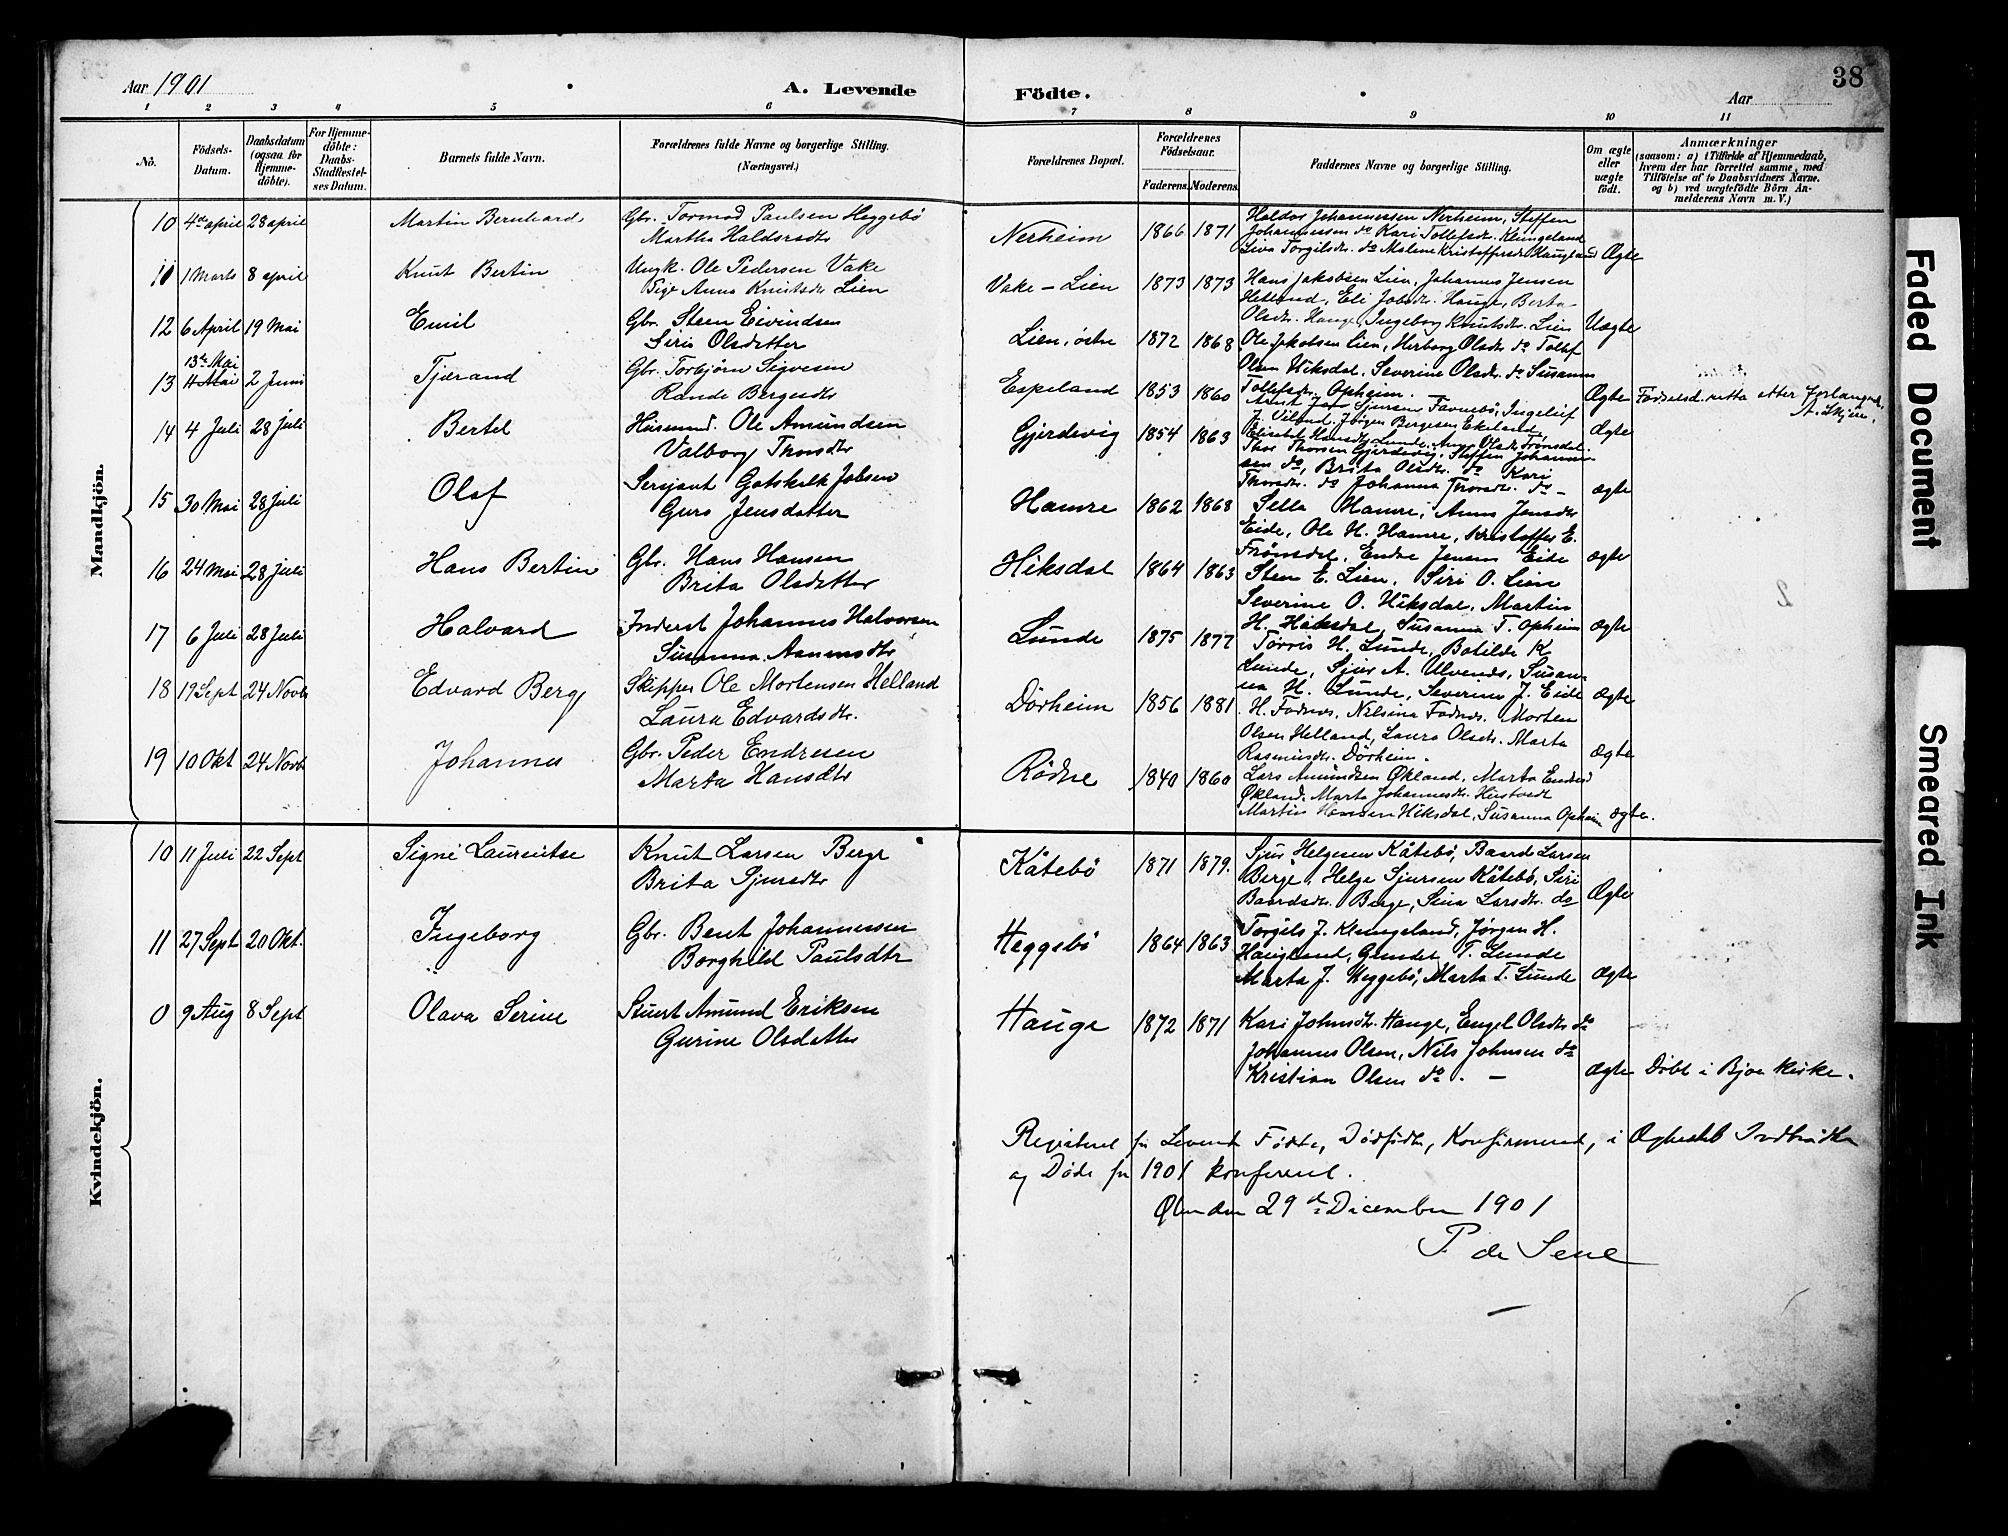 38
Aar 1901
A. Levende
Födte.
Aar
1 2 3 4 5 6 7 8 9 10 11
No.
Födsels-Datum.
Daabsdatum (ogsaa for Hjemme-döbte).
For Hjemme-döbte: Daabs-Stadfæstel-ses Datum.
Barnets fulde Navn.
Forældrenes fulde Navne og borgerlige Stilling. (Næringsvei.)
Forældrenes Bopæl.
Forældrenes Födselsaar.
Faderens. Moderens.
Faddernes Navne og borgerlige Stilling.
Om ægte eller uægte født.
Anmærkninger
(saasom: a) i Tilfælde af Hjemmedaab,
hvem der har forrettet samme, med
Tilföielse af to Daabsvidners Navne.
og b) ved uægtefödte Börn An-
melderens Navn m. V.)
Mandkjön.
10 4de april 28 april Martin Bernhard Gbr. Tormod Paulsen Heggebö
Martha Haldorsdtr Nerheim 1866 1871
Haldor Johannessen Nerheim, Steffen
Johannessen do Kari Tollefsdtr. Klungeland
Lina Torgilsdtr. do Malene Kristoffersdtr Haugland Ægte
11 1 Marts 8 april Knut Bertin Ungk. Ole Pedersen Vake
Pige Anna Knutsdtr Lien Vake - Lien 1873 1873
Hans Jakobsen Lien, Johannes Jensen
Hetland, Eli Jobsdtr. Hauge, Berta
Olsdtr. Hauge, Ingeborg Knutsdtr. Lien Uægte
12 6 April 19 Mai Emil Gbr. Steen Eivindsen
Siri Olsdatter Lien, östre 1872 1868
Ole Jakobsen Lien, Herborg Olsdtr do Tollef
Olsen Hiksdal, Severine Olsdtr. do Susanna
Tollefsdtr. Opheim. Ægte
13de Mai
13 4 Mai 2 Juni Tjærand Gbr. Torbjørn Sigvesen
Rande Bergesdtr Espeland 1853 1860
Sjursen Tavnebö, Ingeleif
J. Vilbnd. Jörgen Bergesen Ekeland
Elisabet Hansdtr Lunde, Anna Olsdtr. Trønsdal Ægte
Fødselsd. retta etter forlangnd.
A. Skjen.
14 4 Juli 28 Juli Bertel Husmd. Ole Amundsen
Valborg Thorsdtr Gjerdevig 1854 1863
Thor Thorsen Gjerdevig, Steffen Johannes-
sen do, Brita Olsdtr. do Kari
Thorsdtr. do Johanna Thorsdtr. do - ægte
15 30 Mai 28 Juli Olaf Sersjant Gotskalk Jobsen
Guro Jensdatter Hamre 1862 1868
Sella Hamre, Anna Jensdtr
Eide, Ole H. Hamre, Kristoffer E.
Trönsdal, Endre Jensen Eide ægte
16 24 Mai 28 Juli Hans Bertin Gbr. Hans Hansen
Brita Olsdatter Hiksdal 1864 1863
Sten E. Lien, Siri O. Lien
Severine O. Hiksdal, Martin
H. Hiksdal, Susanna T. Opheim ægte
17 6 Juli 28 Juli Halvard Inderst Johannes Halvorsen
Susanna Aanensdtr Lunde 1875 1877
Torris H. Lunde, Botilde K
Lunde, Sjur A. Ulvends, Susan-
na H. Lunde, Severine J. Eide Ægte
18 19 Sept 24 Novbr Edvard Berg Skipper Ole Mortensen Helland
Laura Edvardsdtr. Dörheim 1856 1881
H. Fodnes, Nilsina Fodnes. Morten
Olsen Helland, Laura Olsdtr. Marta
Rasmusdtr. Dörheim. ægte
19 10 Okt 24 Novb Johannes Gbr. Peder Endresen
Marta Hansdtr Rödne 1840 1860
Lars Amundsen Økland, Marta Endresd
Økland, Marta Johannesdtr. Hustvedt
Martin Hansen Hiksdal, Susanna Opheim ægte.
Kvindekjön.
10 11 Juli 22 Sept Signe Lauentse Knut Larsen Berge
Brita Sjursdtr Kåtebö 1871 1879.
Sjur Helgesen Kåtebö, Baard Larsen
Berge, Helge Sjursen Kåtebö, Siri
Baardsdtr. Berge, Sina Larsdtr. do Ægte
11 27 Sept 20 Okt. Ingeborg Gbr. Bent Johannessen
Borghild Paulsdtr Heggebö 1864 1863
Torgils J. Klungeland, Jörgen H.
Haugland, Gunder T. Lunde
Marta J. Heggebö, Marta T. Lunde ægte
0 9 Aug 8 Sept Olava Serine Stuert Amund Eriksen
Gurine Olsdatter Hauge 1872 1871
Kari Johnsdtr. Hauge, Engel Olsdtr do
Johannes Olsen, Nils Johnsen do
Kristian Olsen do. - ægte Döbt i Bjoe kirke.
Registeret for Levende Födte, Dödfödte, Konfirmerede, i Ægteskab Indtrådte
og Döde for 1901 konfereret.
Ølen den 29de December 1901
P. de Seue
Faded Document
Smeared Ink